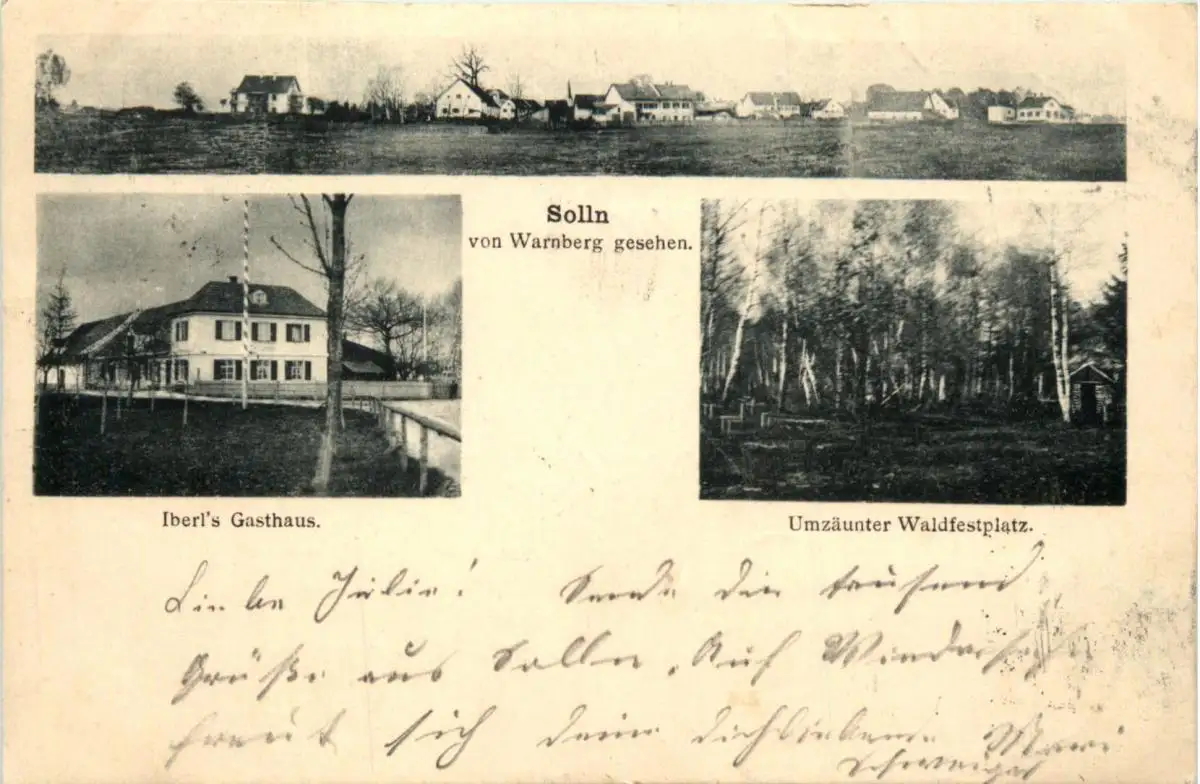 Solln
von Warnberg gesehen.
Iberl's Gasthaus.
Umzäunter Waldfestplatz.
Liebe Julie! Sende dir tausend
Grüße aus Solln. Auf Wiedersehn
freut sich deine dichliebende Mari